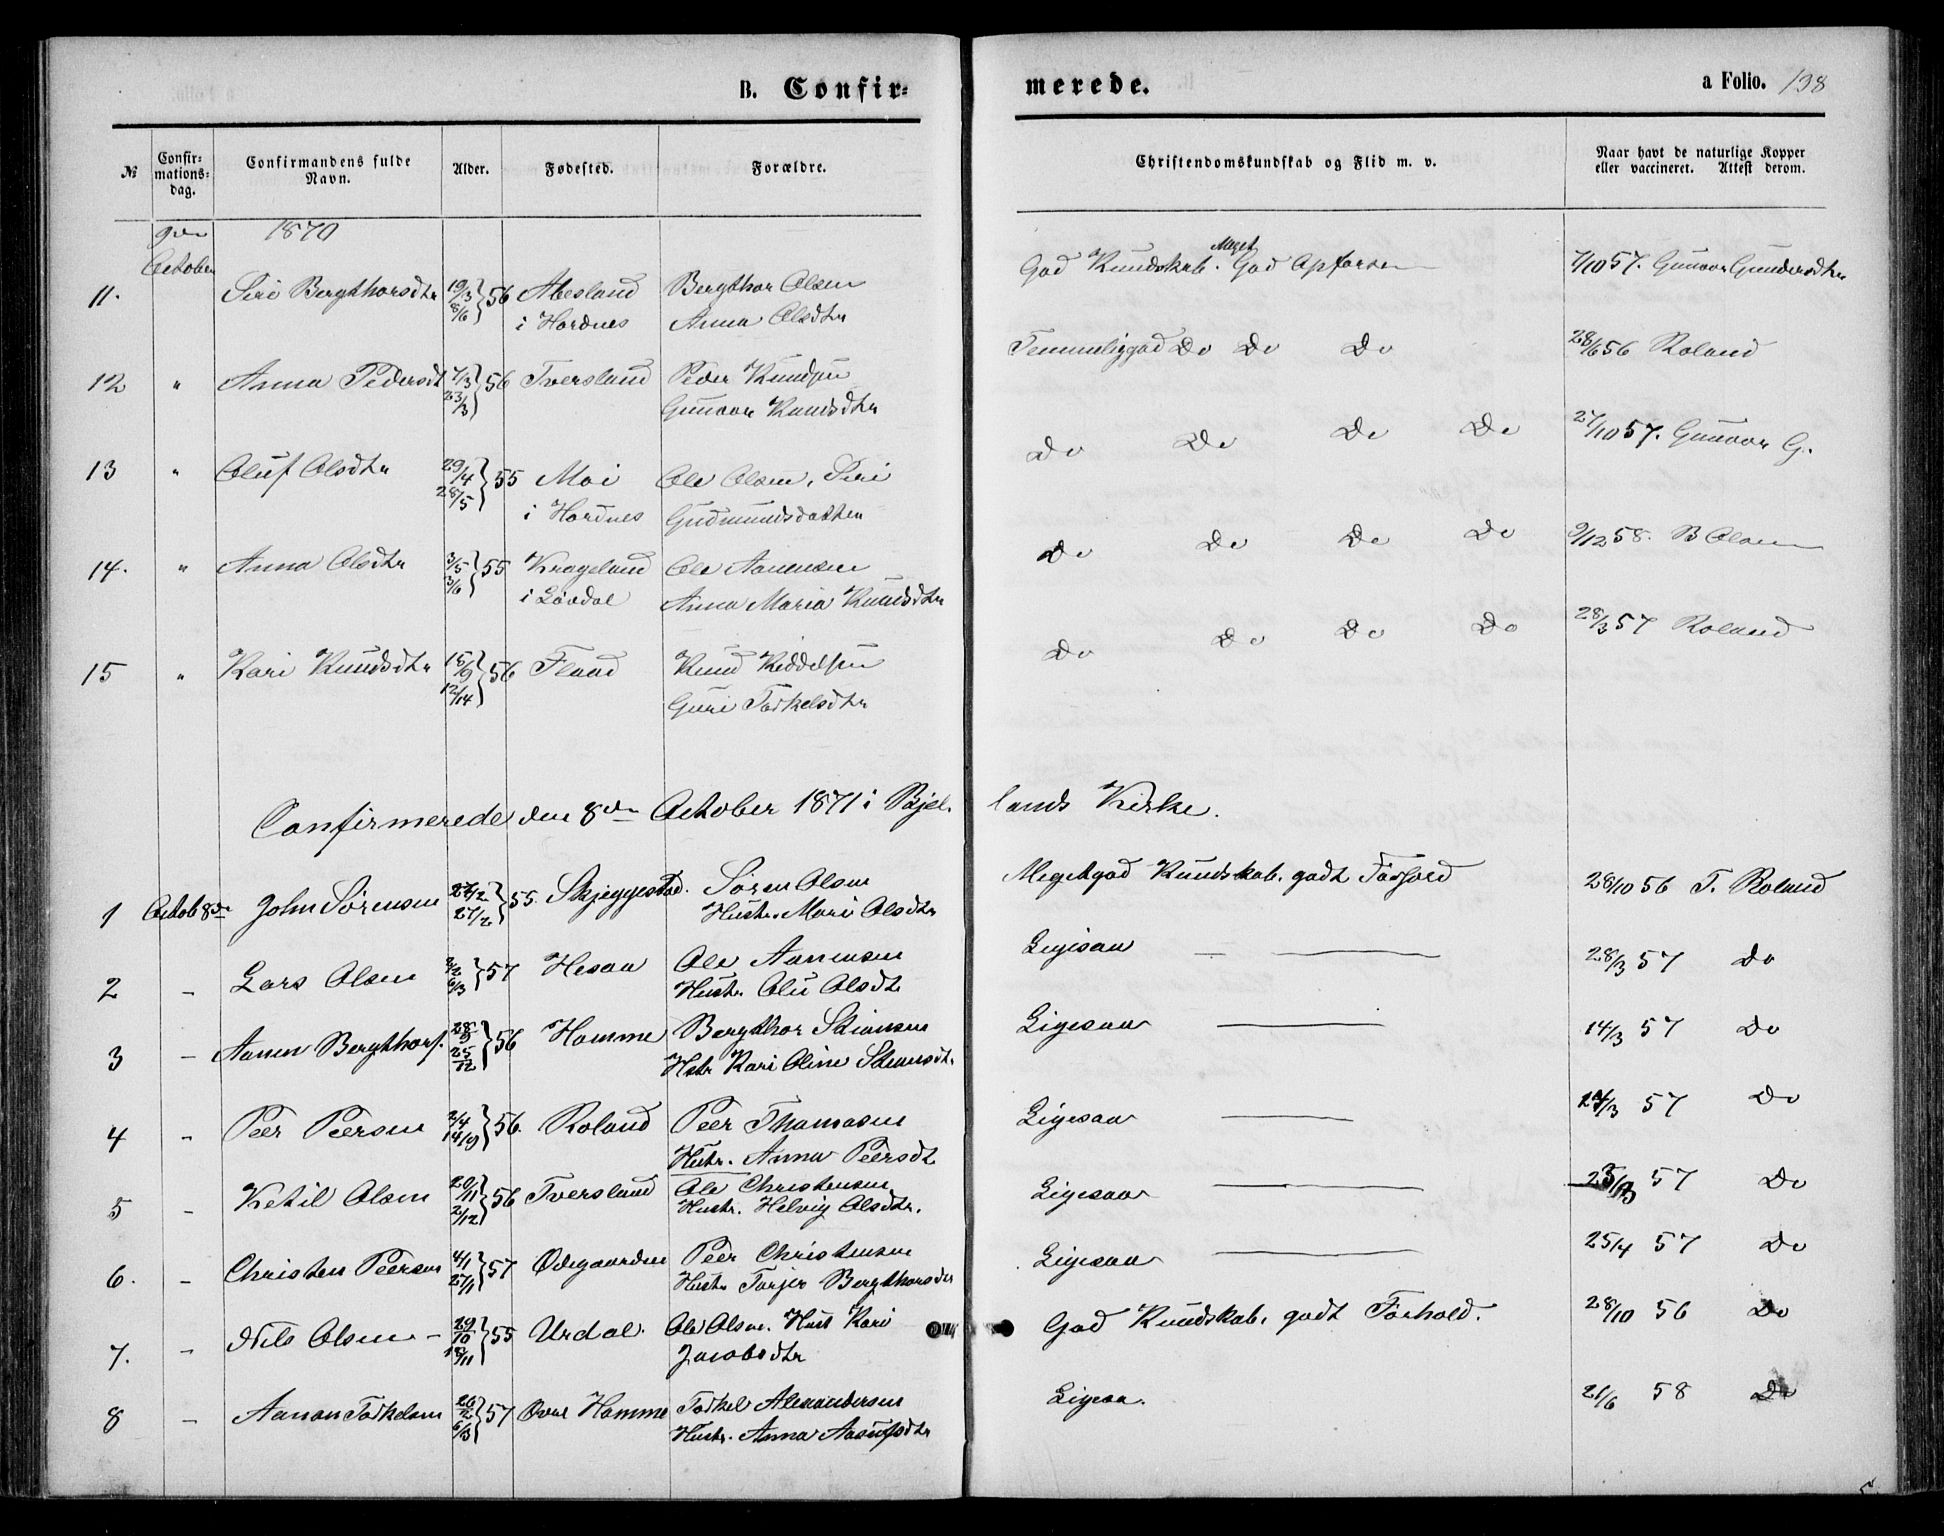 B. Confir-
merede.
a Folio. 138
№
Confir-
mations-
dag.
Confirmandens fulde
Navn.
Alder.
Fødested.
Forældre.
Christendomskundskab og Flid m. v.
Naar havt de naturlige Kopper
eller vaccineret. Attest derom.
9de 1870
October
11. Siri Bergthorsdtr 19/3 8/6 } 56 Abesland Bergthor Olsen God Kundskab. Meget God Opførsen 7/10 57. Gunvor Gundersdtr
i Hordnes Anna Olsdtr
12 " Anna Pedersdt 7/3 23/3 } 56 Tversland Peder Knudsen Temmeliggod Do Do Do 28/6 56 Roland
Gunvor Knudsdtr
13 " Oluf Olsdtr 29/4 28/5 } 55 Moi Ole Olsen, Siri Do Do Do Do 27/10 57. Gunvor G.
i Hordnes Gudmundsdatter
14. " Anna Olsdtr 3/5 3/6 } 55 Krageland Ole Aanensen Do Do Do Do 9/12 58. B Olsen
i Løvdal Anna Maria Knudsdtr
15 " Kari Knudsdtr 15/9 12/14 } 56 Flaad Knud Kiddelsen Do Do Do Do 28/3 57 Roland
Guri Torkelsdtr
Confirmerede den 8de October 1871 i Bjel- lands Kirke.
1 Octob 8de John Sørensen 27/2 } 55. Skjeggestad. Søren Olsen Megetgod Kundskab. godt Forhold 28/10 56 T. Roland
Hustr. Mari Olsdtr
2 - Lars Olsen 6/3 } 57 Hesaa Ole Aanensen Ligesaa — — 28/3 57 Do
Hustr. Olu Olsdt
3 - Aanen Bergthors. 25/12 } 56 Homme Bergthor Ligesaa — 14/3 57 Do
Hstr Kari Oline
4 - Peer Peersen 2/4 14/9 } 56. Roland Peer Thomasen Ligesaa — 57 Do
Hustr. Anna Peersdt
5 - Ketil Olsen 20/11 2/12 } 56 Tversland Ole Christensen Ligesaa — 57 Do
Hustr. Helvig Olsdtr.
6. - Christen Peersen 4/1 27/1 } 57 Ødegaarden Peer Christensen Ligesaa — 25/4 57 Do
Hustr Torjer Bergthorsdtr
7. - Nils Olsen - 29/10 } 55 Urdal. Ole Olsen. Hust Kari God Kundskab, godt Forhold. 28/10 56 Do
Jacobsdtr
8 - Aanon Torkelsen 26/2 6/3 } 57 Øvre Homme Torkel Alexandersen Ligesaa. 21/6 58 Do
Hustr. Anna